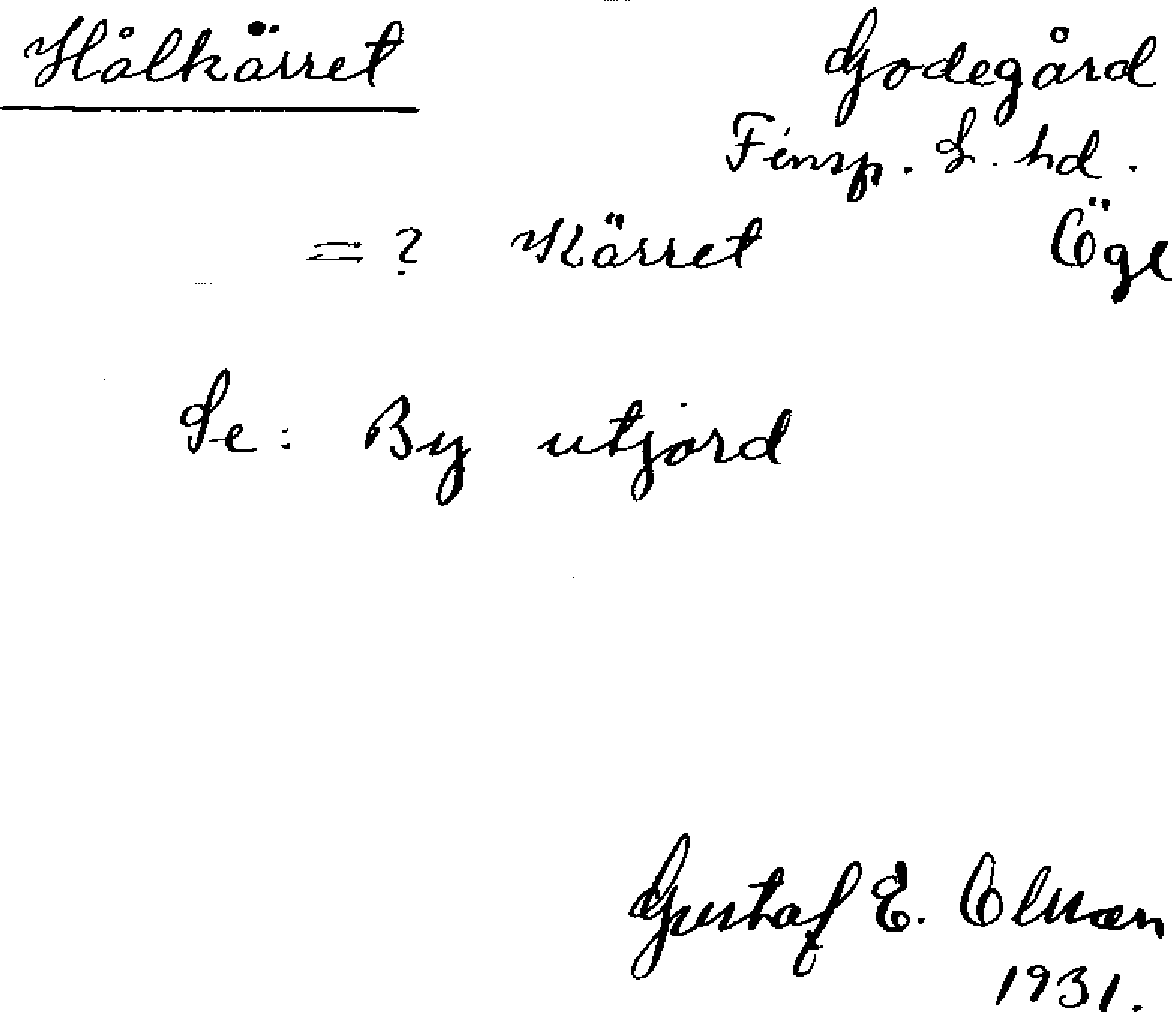 Hålkärret Godegård
Finsp. L. hd.
= ? Kärret Ögl
Se: By utjord
Gustaf E. Olman
1931.